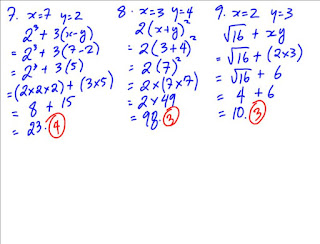 7. x=7 y=2
2³ + 3(x-y)
= 2³ + 3(7-2)
= 2³ + 3(5)
=(2x2x2) + (3x5)
= 8 + 15
= 23. 4
8. x=3 y=4
2(x+y)²
= 2(3+4)²
= 2(7)²
= 2x(7x7)
= 2x49
= 98. 3
9. x=2 y=3
√16 + xy
= √16 + (2x3)
= √16 + 6
= 4 + 6
= 10. 3